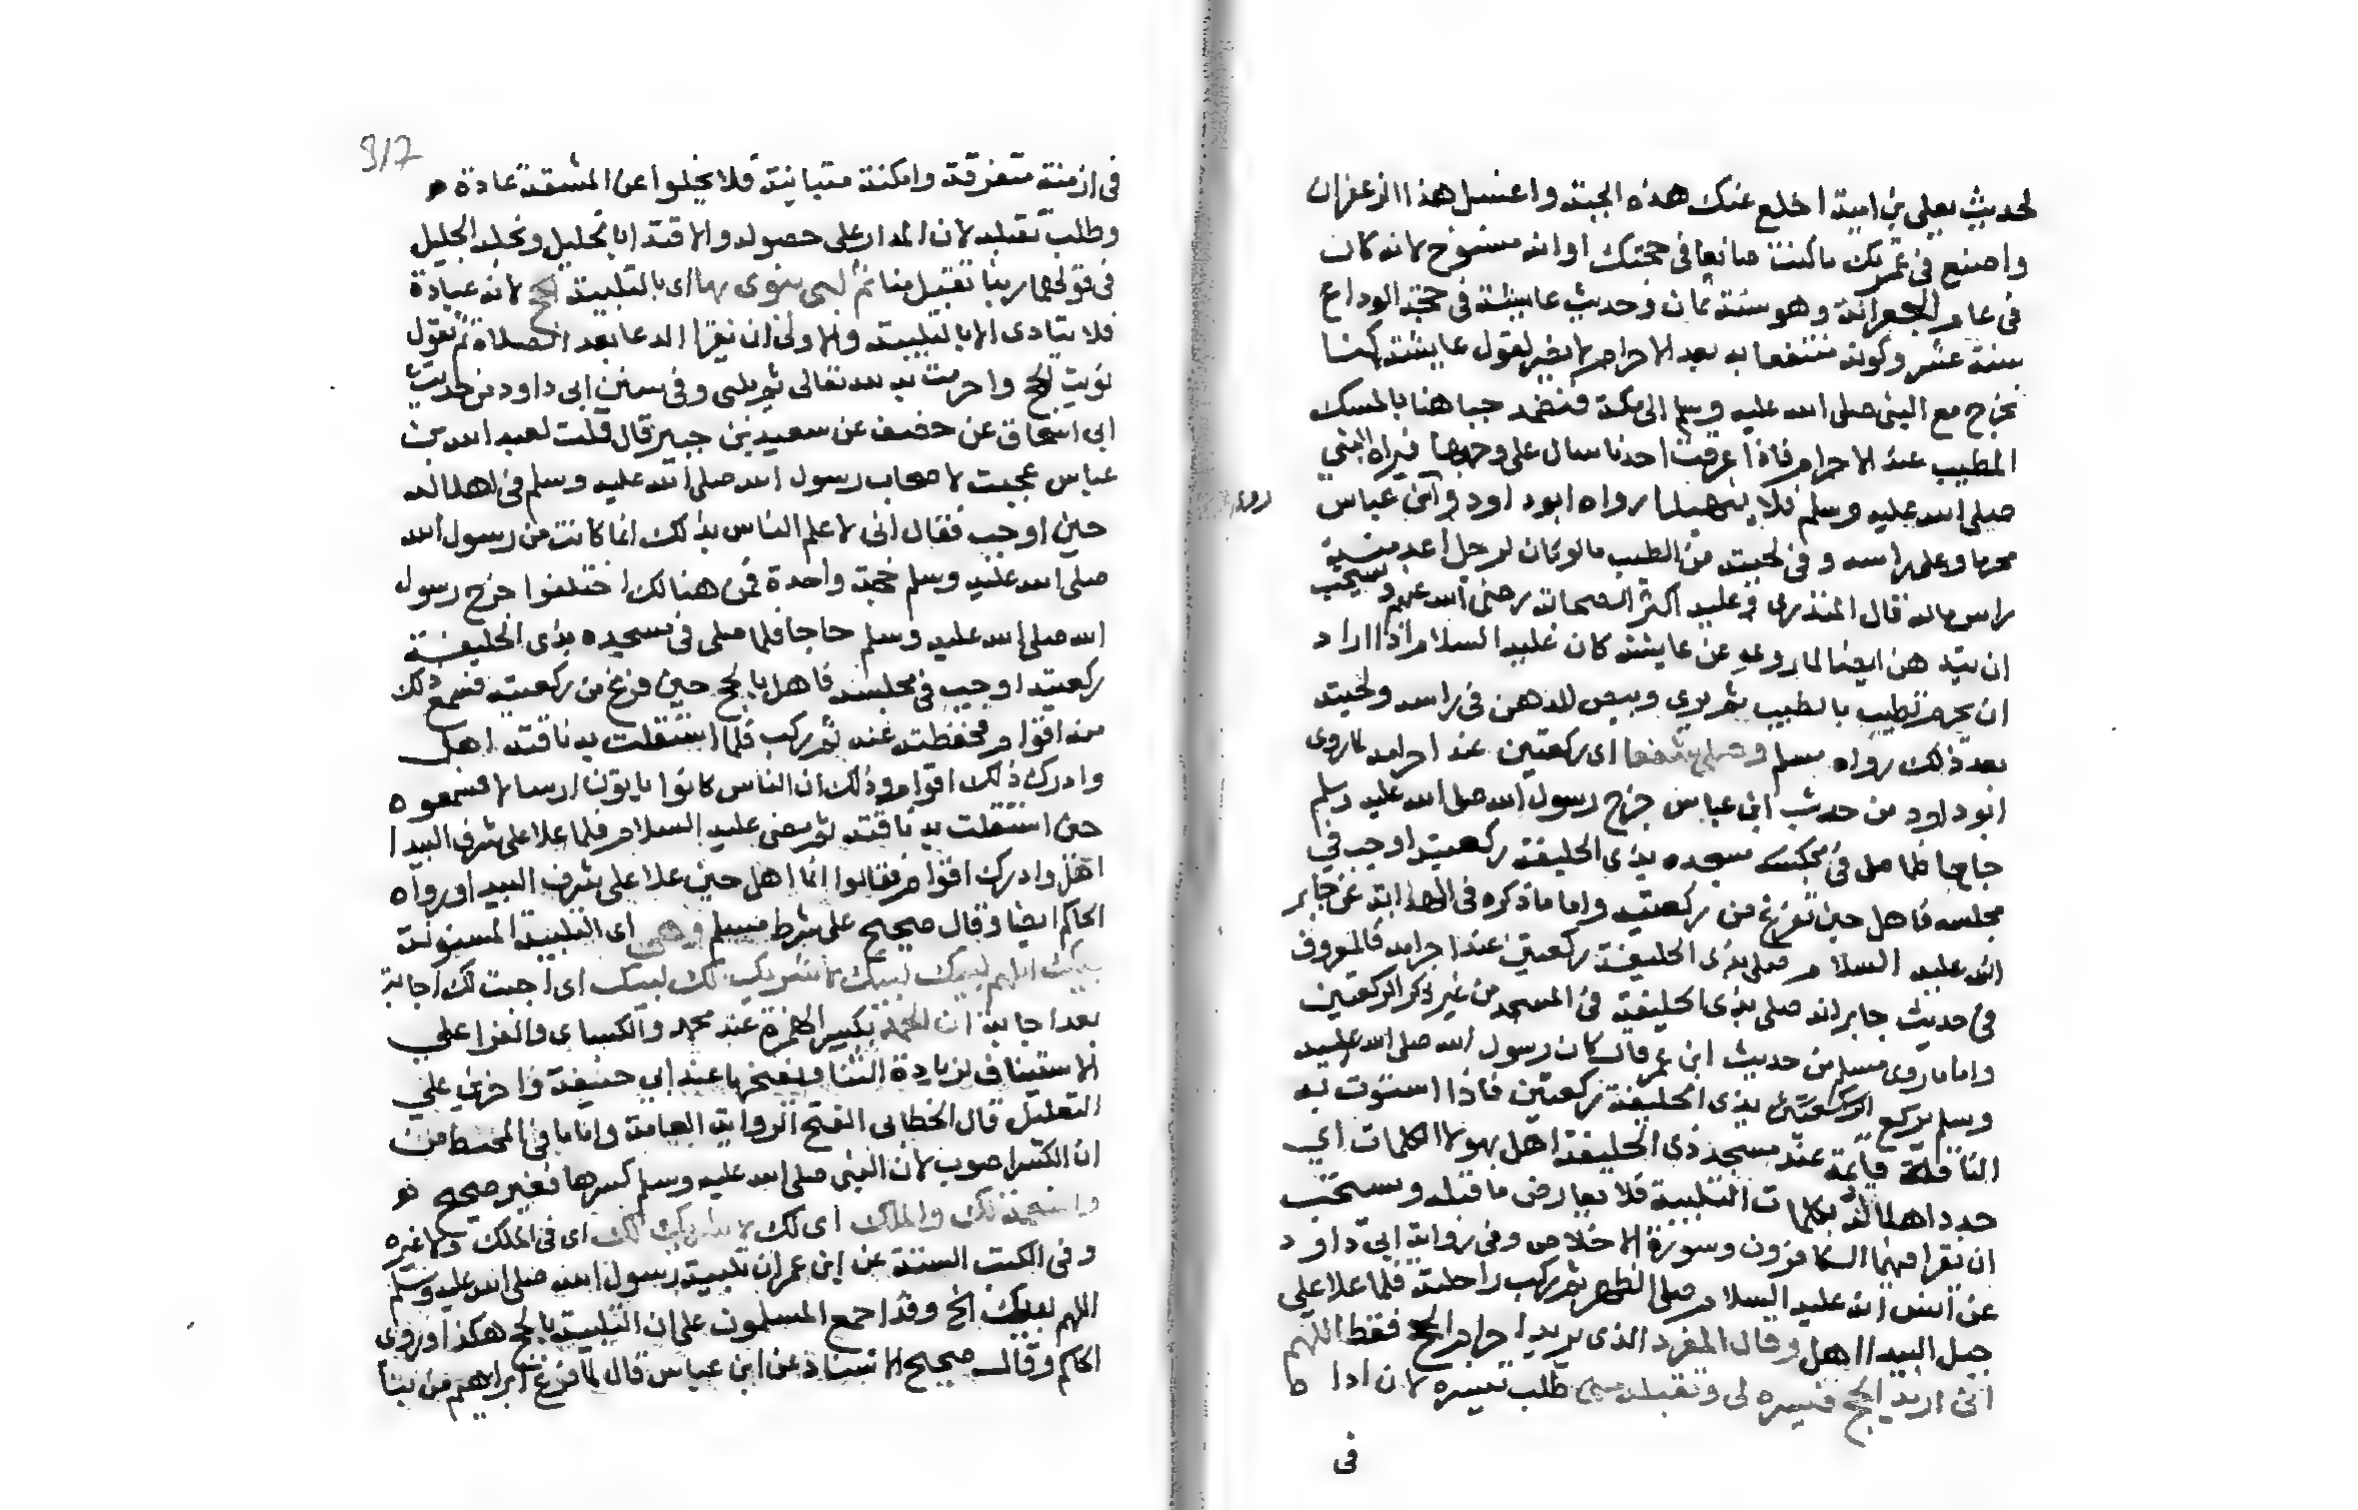 لحديث يعلى بن امية اخلع عنك هذه الجبة واغسل هذا الزعفران
واصنع فى عمرتك ما كنت صانعا فى حجتك او انه منسوخ لانه كان
فى عام الجعرانة وهو سنة ثمان وحديث عايشة فى حجة الوداع
سنة عشر وكونه منتفعا به بعد الاحرام لا يضر لقول عايشة كنا
نخرج مع النبى صلى الله عليه وسلم الى مكة فنضمد جباهنا بالمسك
المطيب عند الاحرام فاذا عرقت احدنا سال على وجهها فيراه النبي
صلى الله عليه وسلم فلا ينهها رواه ابو داود وابن عباس
محرما وعلى راسه وفى لحيته من الطيب ما لو كان لرجل اعد منه
راس ماله قال المنذرى وعليه اكثر الصحابة رضى الله عنهم ويستحب
ان يدهن ايضا لما روى عن عايشة كان عليه السلام اذا اراد
ان يحرم تطيب بالطيب ثم يرى وبيص الدهن فى راسه ولحيته
بعد ذلك رواه مسلم وصلى شفعا اى ركعتين عند احرامه لما روى
ابو داود من حديث ابن عباس خرج رسول الله صلى الله عليه وسلم
حاجا فلما صلى فى مسجده بذى الحليفة ركعتيه اوجب في
مجلسه فاهل حين فرغ من ركعتيه واما ما ذكره فى الهداية عن جابر
انه عليه السلام صلى بذى الحليفة ركعتين عند احرامه فالمعروف
فى حديث جابر انه صلى بذى الحليفة فى المسجد من غير ذكر الركعتين
واما ما روى مسلم من حديث ابن عمر قال كان رسول الله صلى الله عليه
وسلم يركع الركعتين بذى الحليفة ركعتين فاذا استوت به
الناقة قايمة عند مسجد ذى الحليفة اهل بهولا الكلمات اي
جدد اهلاله بكلمات التلبية فلا يعارض ما قبله ويستحب
ان يقرا فيهما الكافرون وسورة الاخلاص وفى رواية ابى داود
عن انس انه عليه السلام صلى الظهر ثم ركب راحلته فلما علا على
جبل البيدا اهل وقال المفرد الذى يريد احرام الحج فقط اللهم
انى اريد الحج فيسره لى وتقبله منى طلب تيسيره لان اداه
فى
317
فى ازمنة متفرقة وامكنة متباينة فلا يخلوا عن المشقة عادة
وطلب تقبله لان المدار على حصوله والاقتدا بالخليل ونجله الجليل
فى قولهما ربنا تقبل منا ثم لبى ينوى بها اى بالتلبية الحج لانه عبادة
فلا يتادى الا بالتلبية والاولى ان يقرا الدعا بعد الصلاة ثم يقول
نويت الحج واحرمت به لله تعالى ثم يلبى وفى سنن ابى داود من حديث
ابى اسحاق عن خصيف عن سعيد بن جبير قال قلت لعبد الله بن
عباس عجبت لاصحاب رسول الله صلى الله عليه وسلم فى اهلاله
حين اوجب فقال انى لاعلم الناس بذلك انما كانت من رسول الله
صلى الله عليه وسلم حجة واحدة فمن هنالك اختلفوا خرج رسول
الله صلى الله عليه وسلم حاجا فلما صلى فى مسجده بذى الحليفة
ركعتيه اوجب فى مجلسه فاهل بالحج حين فرغ من ركعتيه فسمع ذلك
منه اقوام فحفظته عنه ثم ركب فلما استقلت به ناقته اهل
وادرك ذلك اقوام وذلك ان الناس كانوا ياتون ارسالا فسمعوه
حين استقلت به ناقته ثم مضى عليه السلام فلما علا على شرف البيدا
اهل وادرك اقوام فقالوا انما اهل حين علا على شرف البيدا ورواه
الحاكم ايضا وقال صحيح على شرط مسلم وهى اى التلبية المسنونة
لبيك اللهم لبيك لبيك لا شريك لك لبيك اى اجبت لك اجابة
بعد اجابة ان الحمد بكسر الهمزة عند محمد والكساى والفرا على
الاستيناف لزيادة الثنا وبفتحها عند ابى حنيفة واخرين على
التعليل قال الخطابى الفتح الرواية العامة واما ما فى المحيط من
ان الكسر اصوب لان النبى صلى الله عليه وسلم كسرها فغير صحيح
والنعمة لك والملك اى لك لا شريك لك اى فى الملك ولا غيره
وفى الكتب الستة عن ابن عمر ان تلبية رسول الله صلى الله عليه وسلم
اللهم لبيك الخ وقد اجمع المسلمون على ان التلبية بالحج هكذا وروى
الحاكم وقال صحيح الاسناد عن ابن عباس قال لما فرغ ابراهيم من بنا